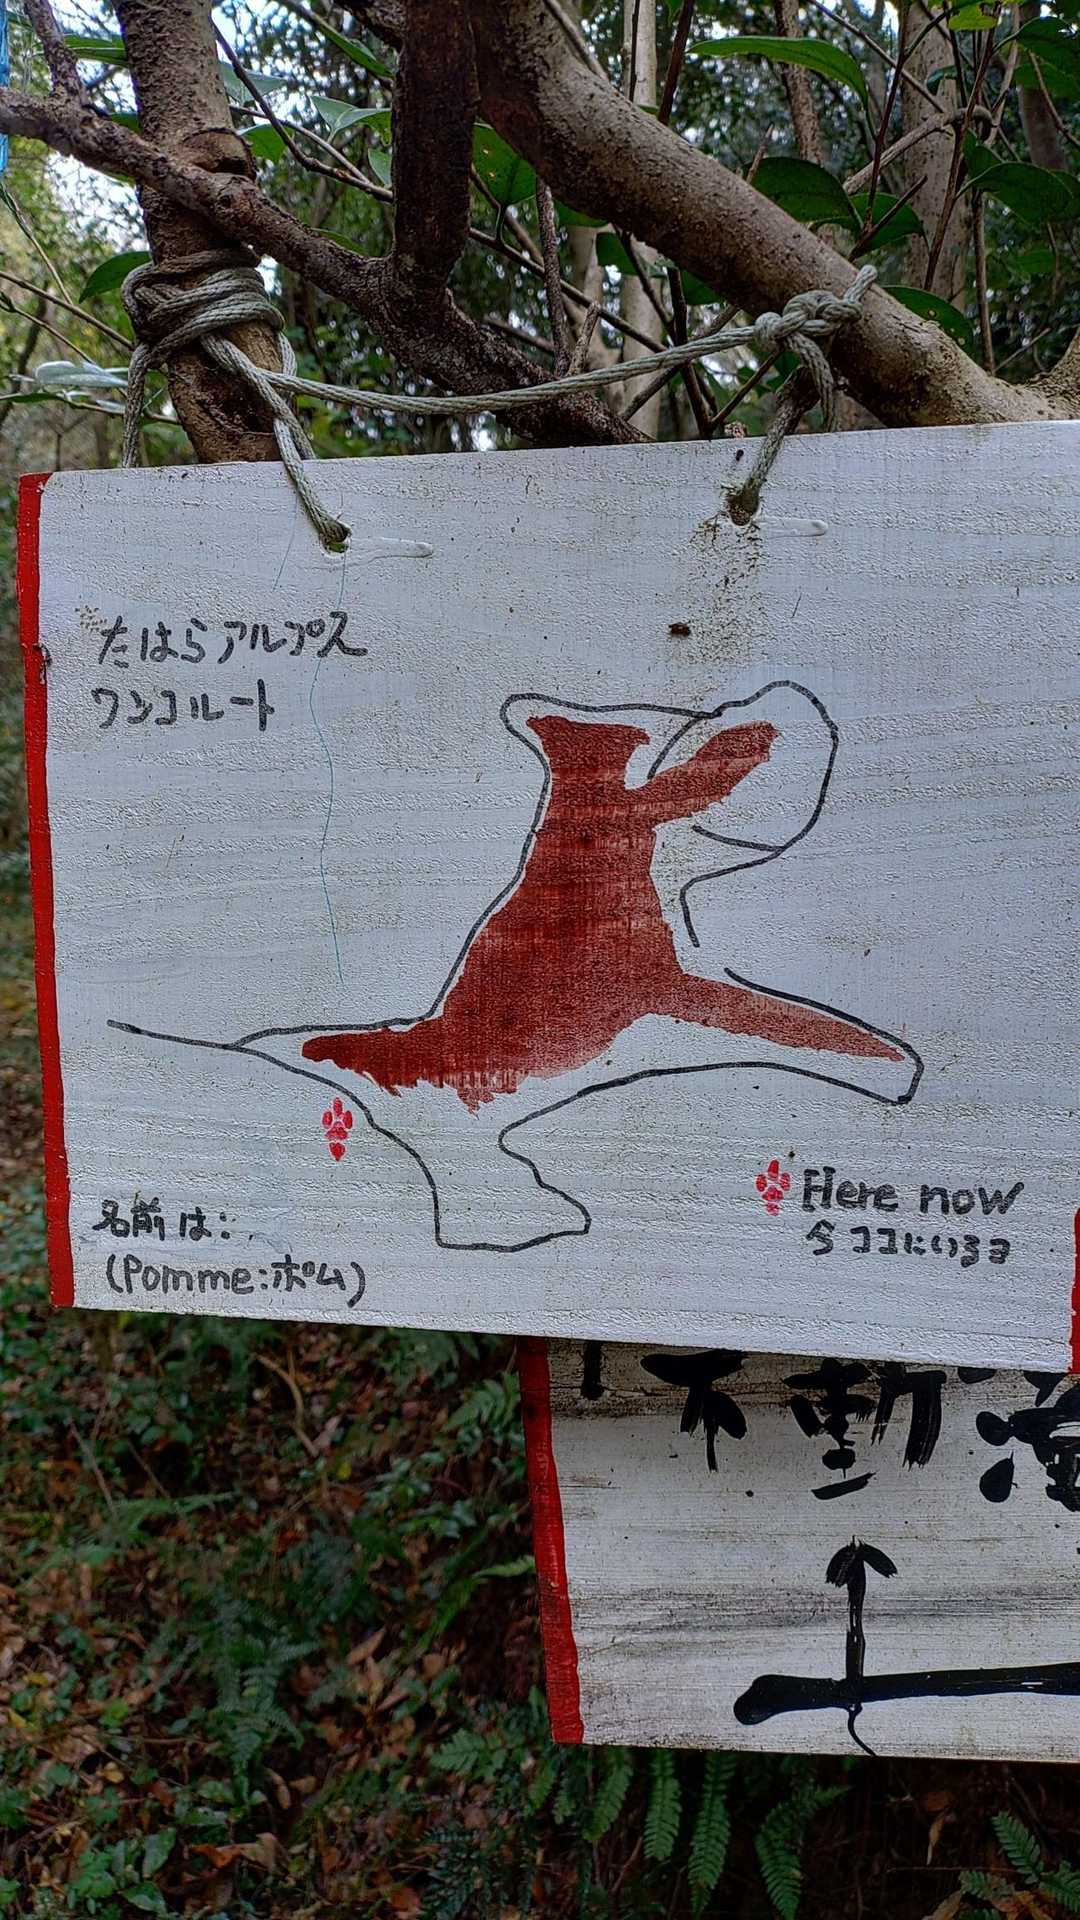 たはらアルプス
ワンコルート
Here now
今ココにいるヨ
名前は:
(Pomme:ポム)
不動滝